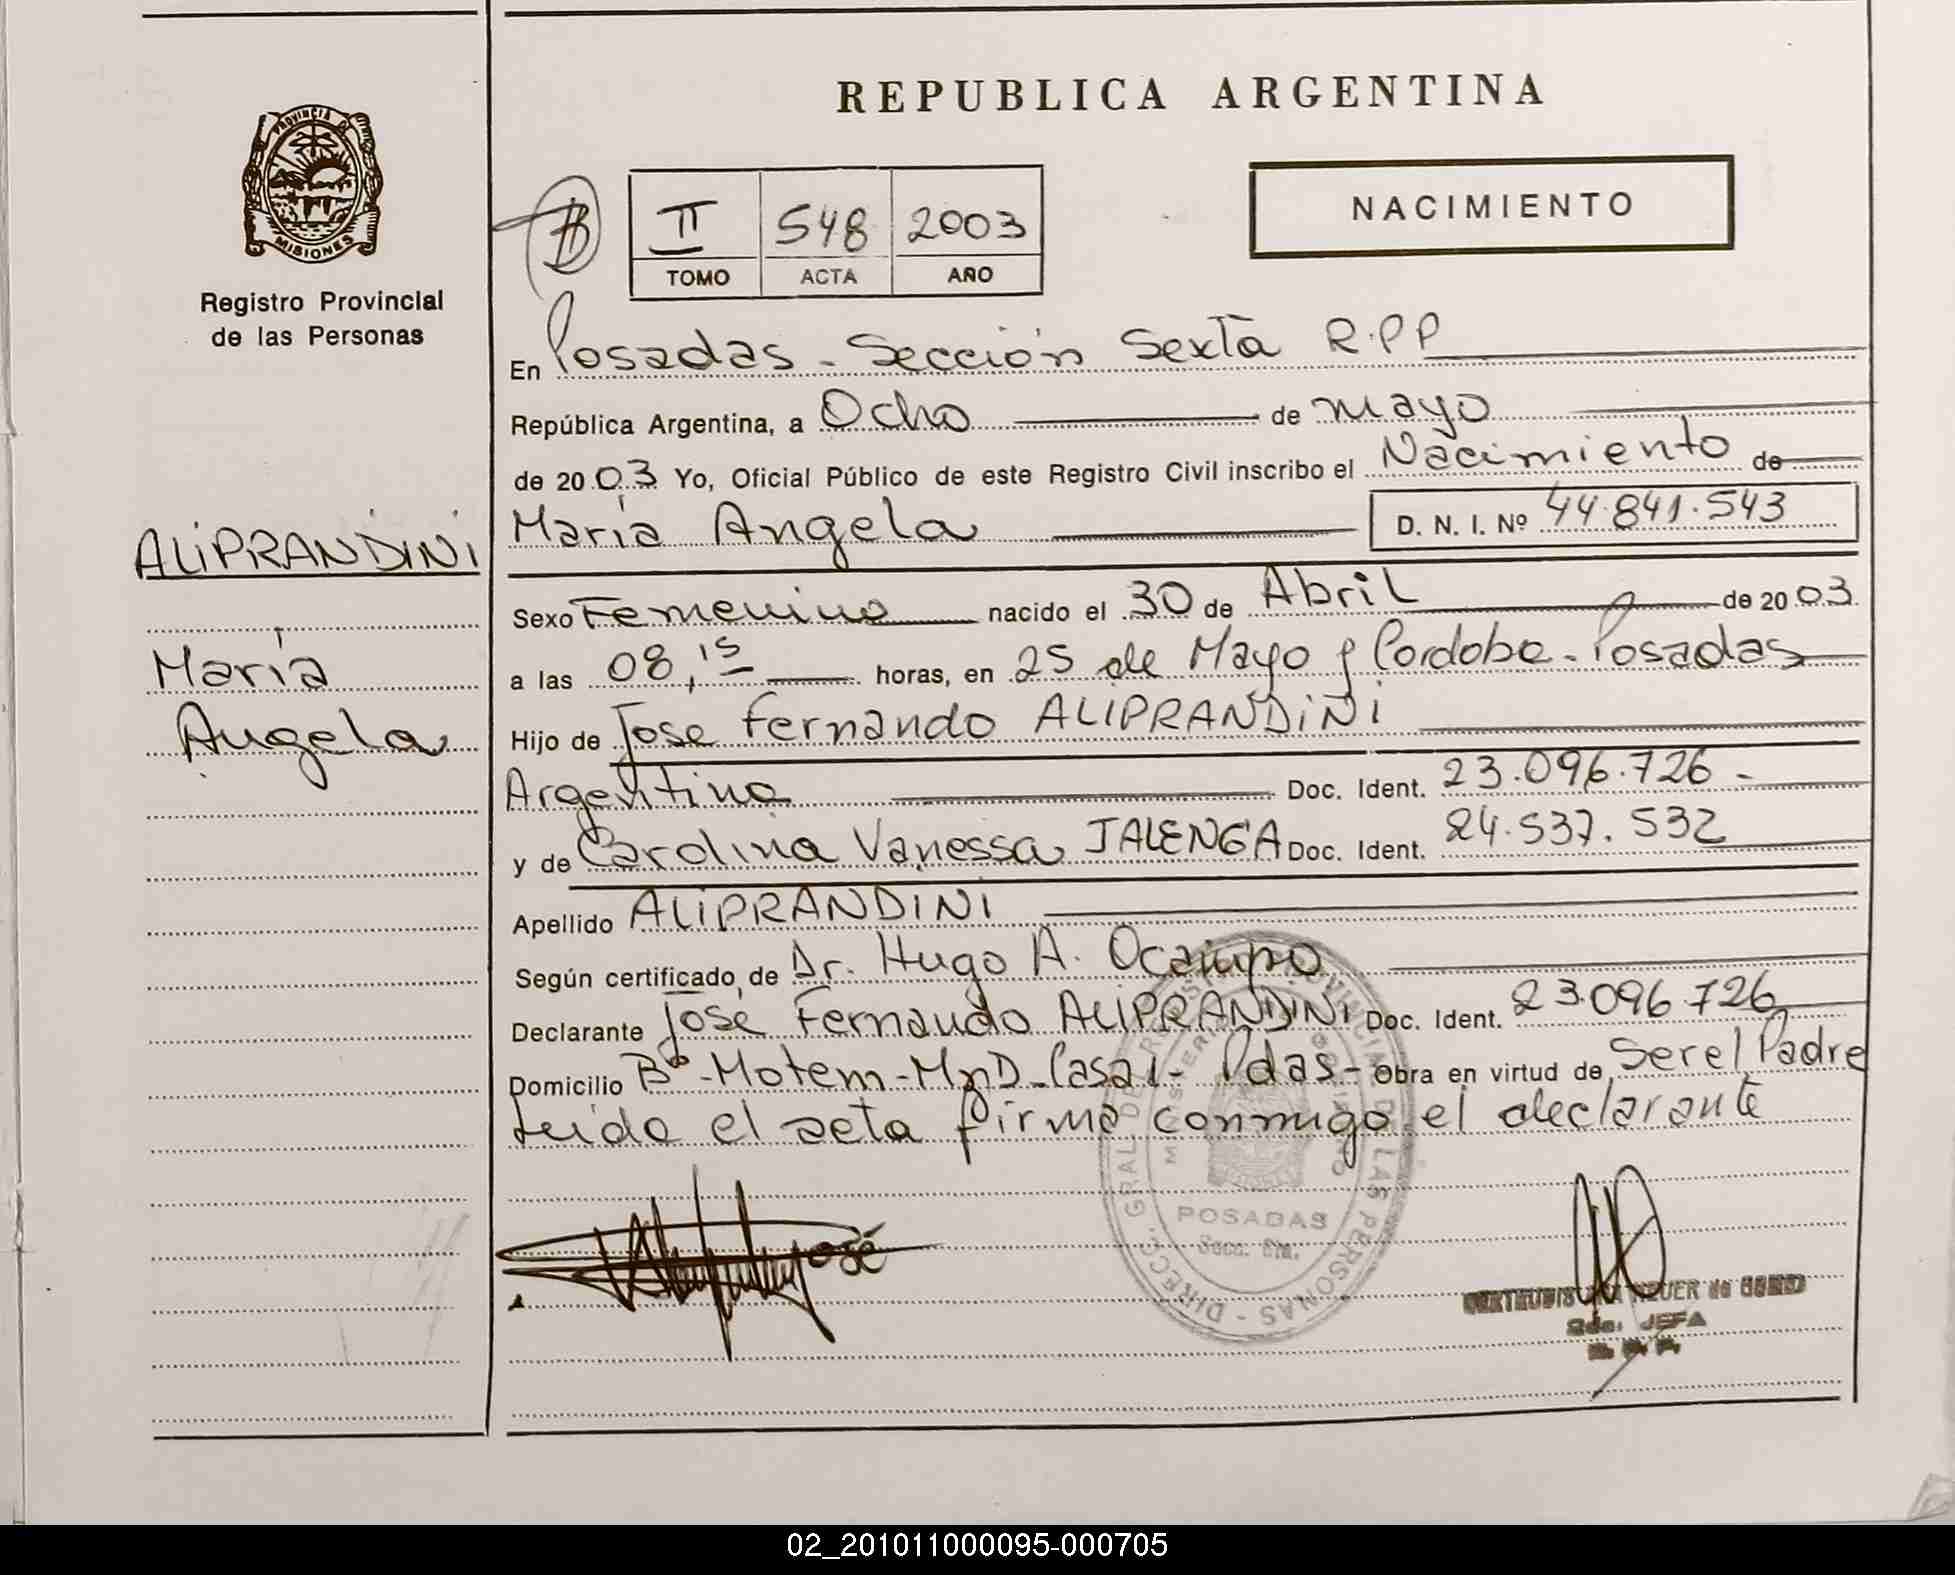 REPUBLICA ARGENTINA
PROVINCIA DE MISIONES
Registro Provincial
de las Personas
B
II 548 2003
TOMO ACTA AÑO
NACIMIENTO
En Posadas - Sección Sexta R.P.P
República Argentina, a Ocho de mayo
de 2003 Yo, Oficial Público de este Registro Civil inscribo el Nacimiento de
María Angela D. N. I. Nº 44.841.543
ALiPRANDiNi
María
Angela
Sexo Femenino nacido el 30 de Abril de 2003
a las 08,15 horas, en 25 de Mayo y Cordoba - Posadas
Hijo de Jose Fernando ALiPRANDiNi
Argentino Doc. Ident. 23.096.726 -
y de Carolina Vanessa JALENGA Doc. Ident. 24.537.532
Apellido ALiPRANDiNi
Según certificado de Dr. Hugo A. Ocampo
Declarante José Fernando ALiPRANDINI Doc. Ident. 23.096.726
Domicilio Bº - Hotem - MznD - Casa 1 - Pdas - Obra en virtud de Ser el Padre
Leido el acta firma conmigo el declarante
José
DIREC. GRAL. DE REGISTRO PROVINCIAL DE LAS PERSONAS
MINISTERIO DE GOBIERNO
POSADAS
Secc. 6ta.
2da. JEFA
R.P.P.
02_201011000095-000705